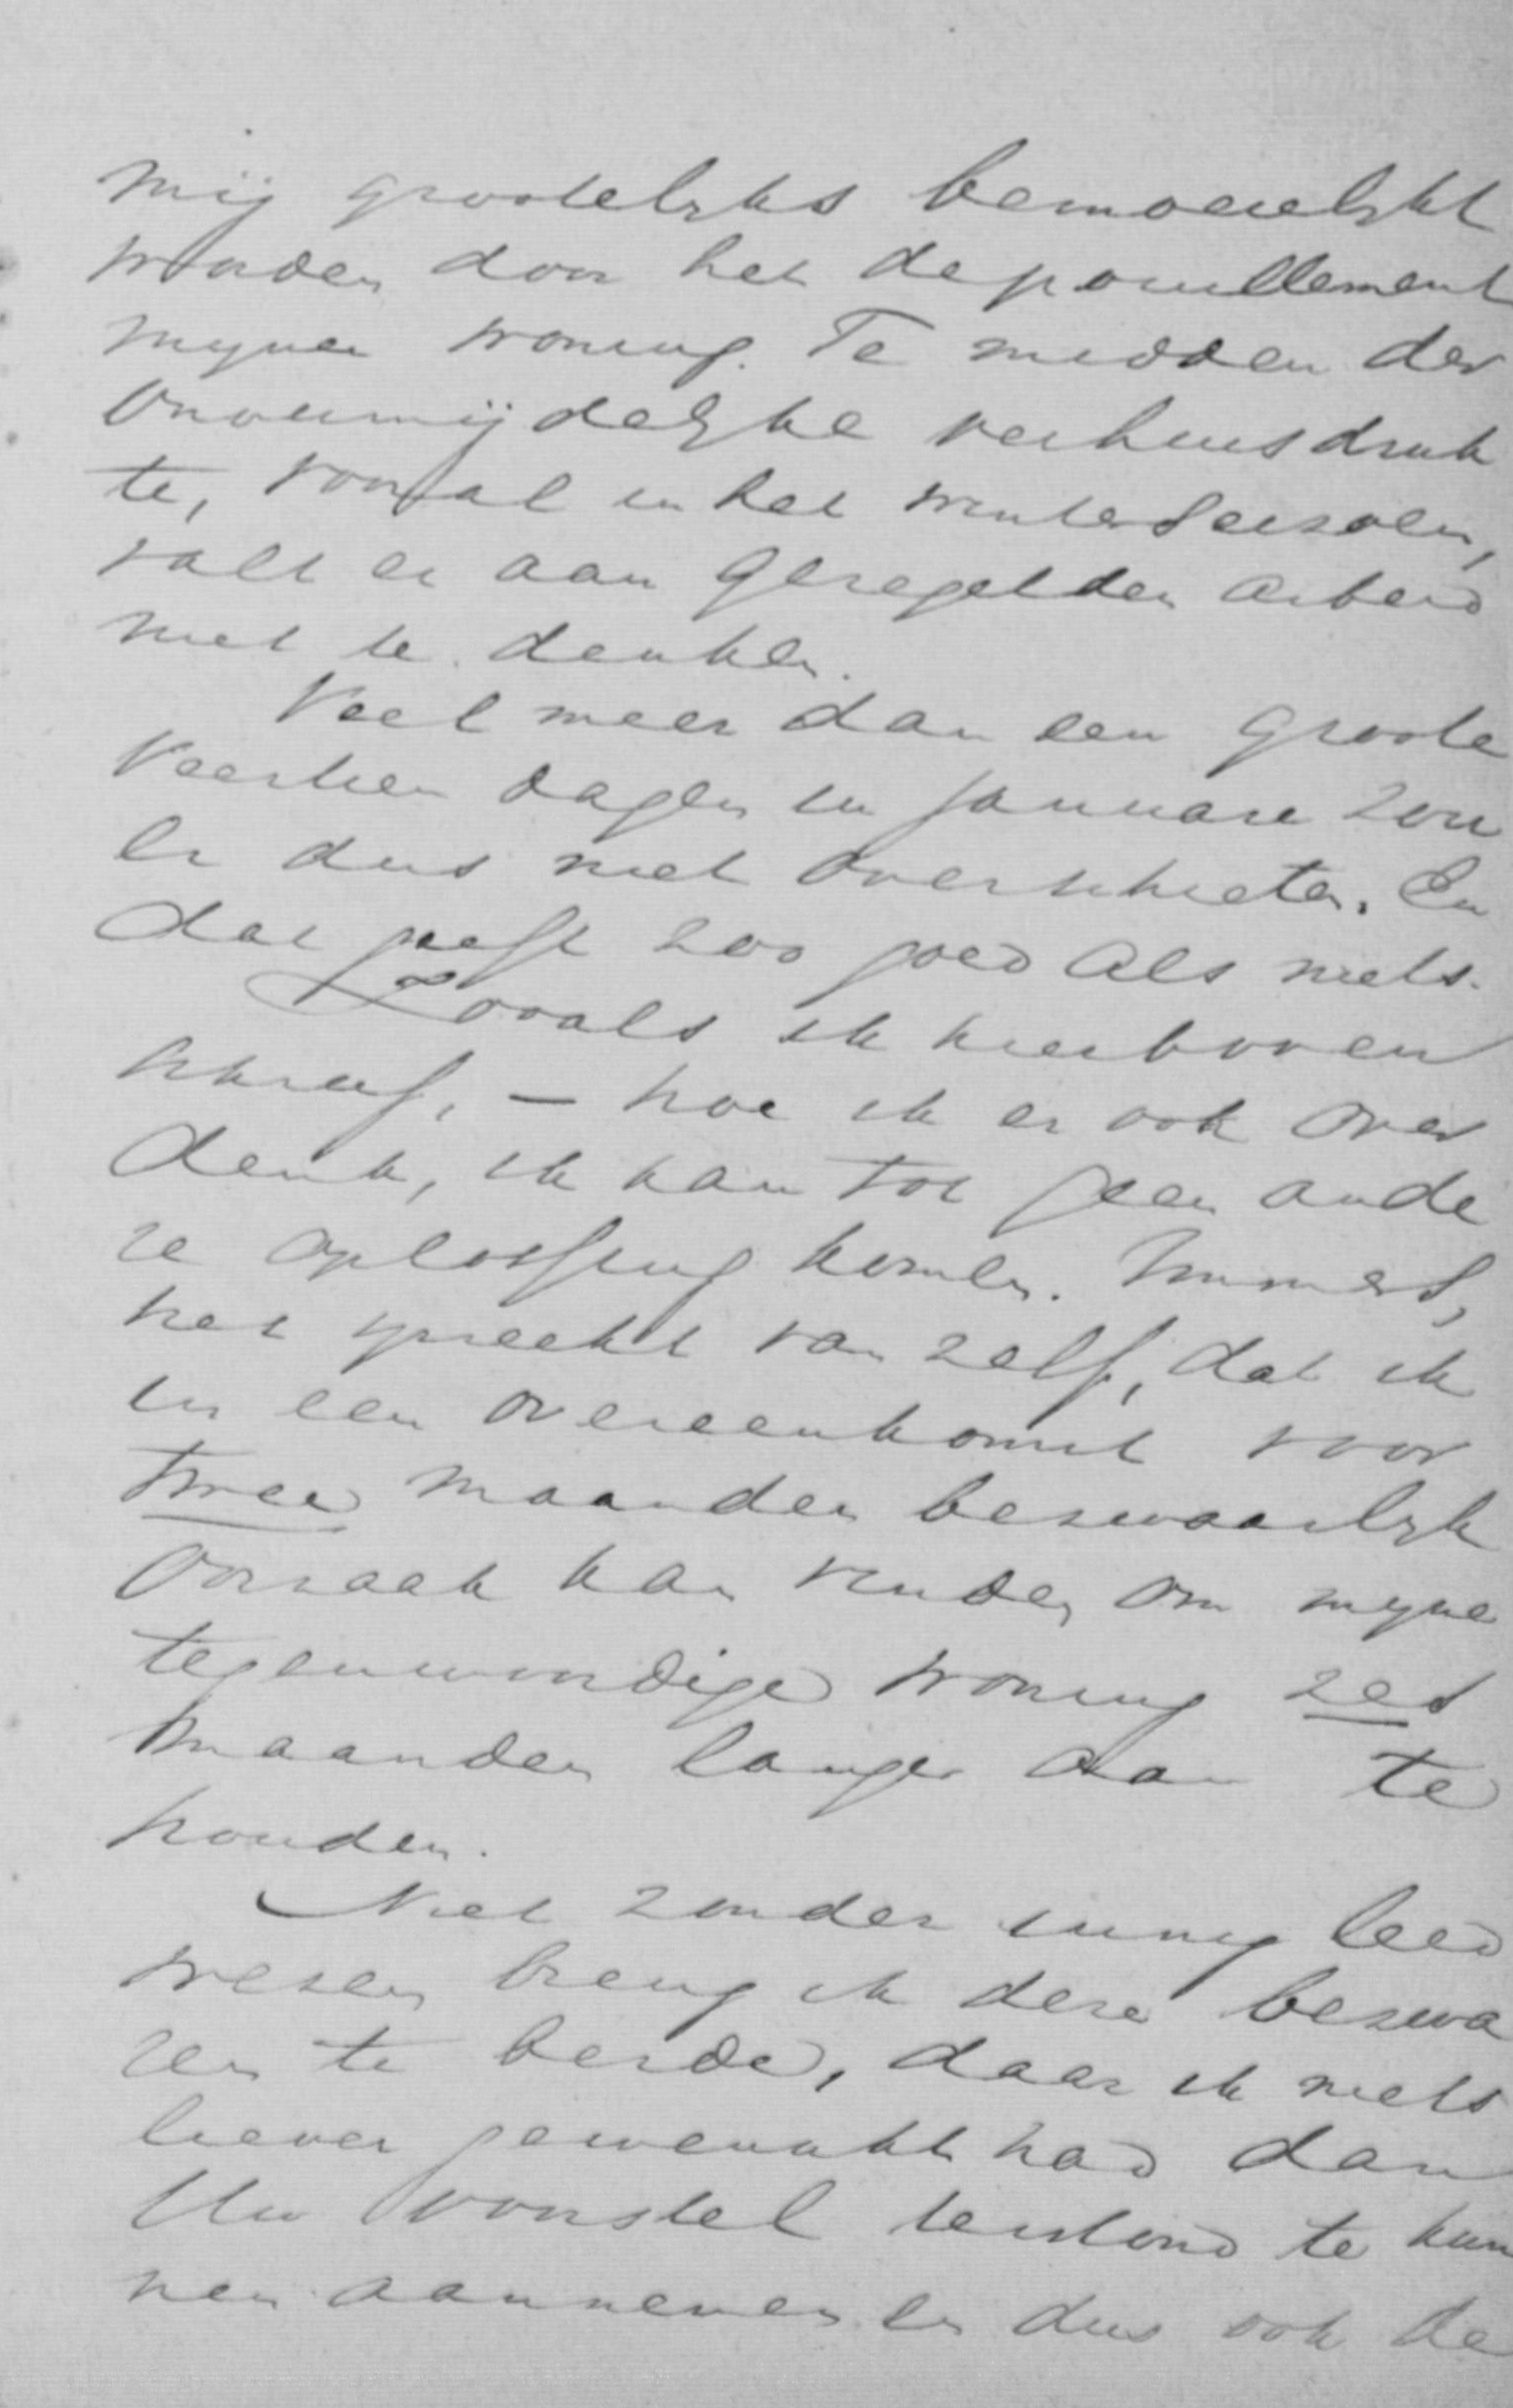 mij grootelyks bemoeielykt
worden door het depouillement
myner woning. Te midden der
onvermijdelyke verhuisdruk
te, vooral in het winterseizoen,
valt er aan geregelden arbeid
niet te denken.
Veel meer dan een groote
veertien dagen in Januari zou
er dus niet overschieten. En
dat geeft zoo goed als niets.
Zooals ik hierboven
schreef, – hoe ik er ook over
denk, ik kan tot geen ande
re oplossing komen. Immers,
het spreekt van zelf, dat ik
in een overeenkomst voor
twee maanden bezwaarlyk
oorzaak kan vinden om myne
tegenwoordige woning zes
maanden langer aan te
houden.
Niet zonder innig leed
wezen breng ik deze bezwa
ren te berde, daar ik niets
liever gewenscht had dan
Uw voorstel terstond te kun
nen aannemen en dus ook de